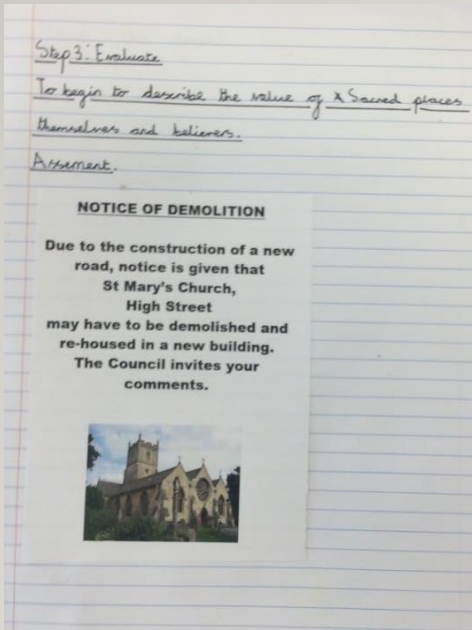 Step 3: Evaluate
To begin to describe the value of Sacred places
themselves and believers.
Assement.
NOTICE OF DEMOLITION
Due to the construction of a new
road, notice is given that
St Mary's Church,
High Street
may have to be demolished and
re-housed in a new building.
The Council invites your
comments.